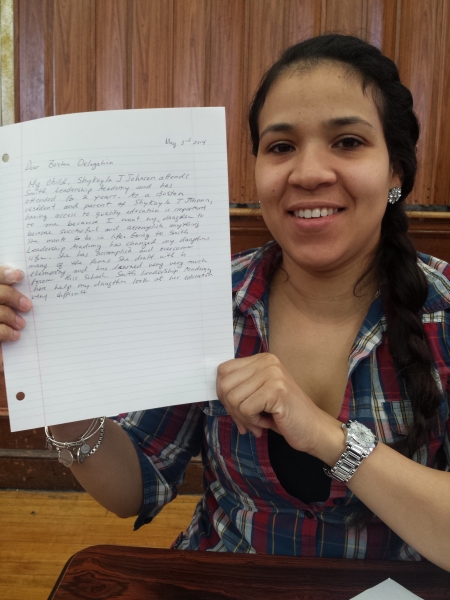 May 3rd 2014
Dear Boston Delegation
My child, Shykayla J Johnson attends
Smith Leadership Academy and has
attended for 2 years. As a Boston
resident and parent of Shykayla J Johnson,
having access to quality education is important
to me because I want my daughter to
become successful and accomplish anything
she wants to be in life. Going to Smith
Leadership Academy has changed my daughters
life. She has accomplished and overcome
many of her fears. She dealt with a
and has learned very very much
from this School. Smith Leadership Academy
has help my daughter look at her education
very different